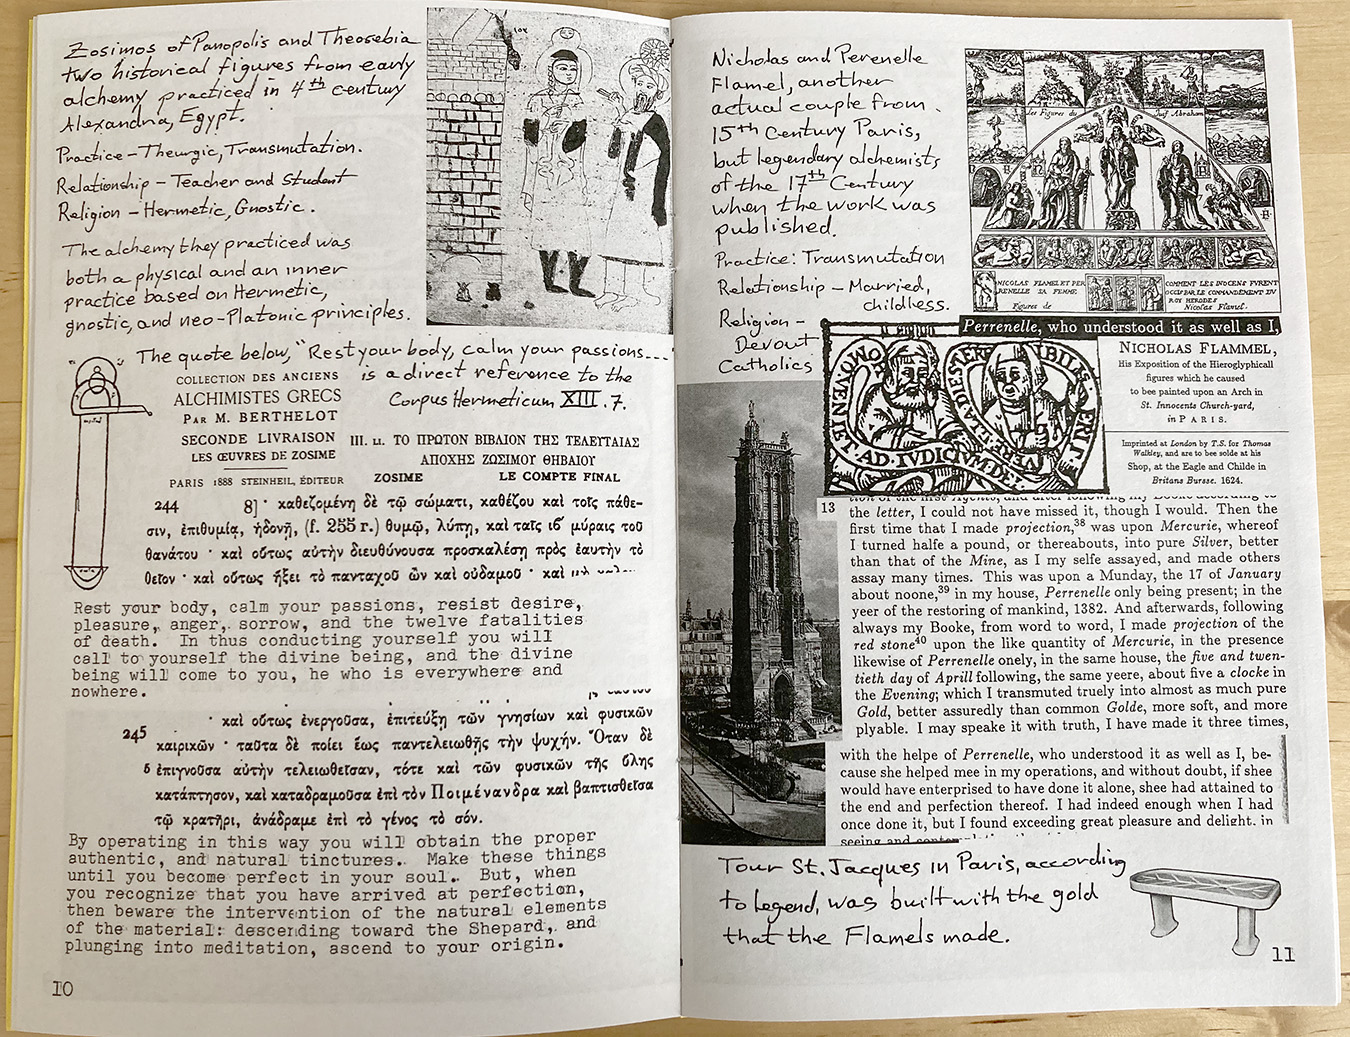 Zosimos of Panopolis and Theosebia
two historical figures from early
alchemy practiced in 4th century
Alexandria, Egypt.
Practice – Theurgic, Transmutation.
Relationship – Teacher and Student
Religion – Hermetic, Gnostic.
The alchemy they practiced was
both a physical and an inner
practice based on Hermetic,
gnostic, and neo-Platonic principles.
The quote below, "Rest your body, calm your passions...
is a direct reference to the
Corpus Hermeticum XIII. 7.
COLLECTION DES ANCIENS
ALCHIMISTES GRECS
PAR M. BERTHELOT
SECONDE LIVRAISON
LES ŒUVRES DE ZOSIME
PARIS 1888 STEINHEIL, ÉDITEUR
III. LI. ΤΟ ΠΡΩΤΟΝ ΒΙΒΛΙΟΝ ΤΗΣ ΤΕΛΕΥΤΑΙΑΣ
ΑΠΟΧΗΣ ΖΩΣΙΜΟΥ ΘΗΒΑΙΟΥ
ZOSIME LE COMPTE FINAL
244 8] · καθεζομένη δὲ τῷ σώματι, καθέζου καὶ τοῖς πάθε-
σιν, ἐπιθυμίᾳ, ἡδονῇ, (f. 255 r.) θυμῷ, λύπῃ, καὶ ταῖς ιϐ μύραις τοῦ
θανάτου · καὶ οὕτως αὐτὴν διευθύνουσα προσκαλέσῃ πρὸς ἑαυτὴν τὸ
θεῖον · καὶ οὕτως ἥξει τὸ πανταχοῦ ὢν καὶ οὐδαμοῦ · καὶ
Rest your body, calm your passions, resist desire,
pleasure, anger, sorrow, and the twelve fatalities
of death. In thus conducting yourself you will
call to yourself the divine being, and the divine
being will come to you, he who is everywhere and
nowhere.
245 · καὶ οὕτως ἐνεργοῦσα, ἐπιτεύξῃ τῶν γνησίων καὶ φυσικῶν
καιρικῶν · ταῦτα δὲ ποίει ἕως παντελειωθῇς τὴν ψυχήν. Ὅταν δὲ
5 ἐπιγνοῦσα αὐτὴν τελειωθεῖσαν, τότε καὶ τῶν φυσικῶν τῆς ὕλης
κατάπτησον, καὶ καταδραμοῦσα ἐπὶ τὸν Ποιμένανδρα καὶ βαπτισθεῖσα
τῷ κρατῆρι, ἀνάδραμε ἐπὶ τὸ γένος τὸ σόν.
By operating in this way you will obtain the proper
authentic, and natural tinctures. Make these things
until you become perfect in your soul. But, when
you recognize that you have arrived at perfection,
then beware the intervention of the natural elements
of the material: descending toward the Shepard, and
plunging into meditation, ascend to your origin.
10
Nicholas and Perenelle
Flamel, another
actual couple from
15th Century Paris,
but legendary alchemists
of the 17th Century
when the work was
published.
Practice: Transmutation
Relationship – Married,
childless.
Religion –
Devout
Catholics
les Figures du Juif Abraham
NICOLAS FLAMEL ET PER
RENELLE SA FEMME.
Figures de
COMMENT LES INOCENS FVRENT
OCCIS PAR LE COMMANDEMENT DV
ROY HERODES
Nicolas Flamel.
Perrenelle, who understood it as well as I,
NICHOLAS FLAMMEL,
His Exposition of the Hieroglyphicall
figures which he caused
to bee painted upon an Arch in
St. Innocents Church-yard,
in PARIS.
Imprinted at London by T.S. for Thomas
Walkley, and are to bee solde at his
Shop, at the Eagle and Childe in
Britans Bursse. 1624.
AD·IVDICIVM
13
the letter, I could not have missed it, though I would. Then the
first time that I made projection,38 was upon Mercurie, whereof
I turned halfe a pound, or thereabouts, into pure Silver, better
than that of the Mine, as I my selfe assayed, and made others
assay many times. This was upon a Munday, the 17 of January
about noone,39 in my house, Perenelle only being present; in the
yeer of the restoring of mankind, 1382. And afterwards, following
always my Booke, from word to word, I made projection of the
red stone40 upon the like quantity of Mercurie, in the presence
likewise of Perrenelle onely, in the same house, the five and twen-
tieth day of Aprill following, the same yeere, about five a clocke in
the Evening; which I transmuted truely into almost as much pure
Gold, better assuredly than common Golde, more soft, and more
plyable. I may speake it with truth, I have made it three times,
with the helpe of Perrenelle, who understood it as well as I, be-
cause she helped mee in my operations, and without doubt, if shee
would have enterprised to have done it alone, shee had attained to
the end and perfection thereof. I had indeed enough when I had
once done it, but I found exceeding great pleasure and delight, in
seeing and
Tour St. Jacques in Paris, according
to legend, was built with the gold
that the Flamels made.
11